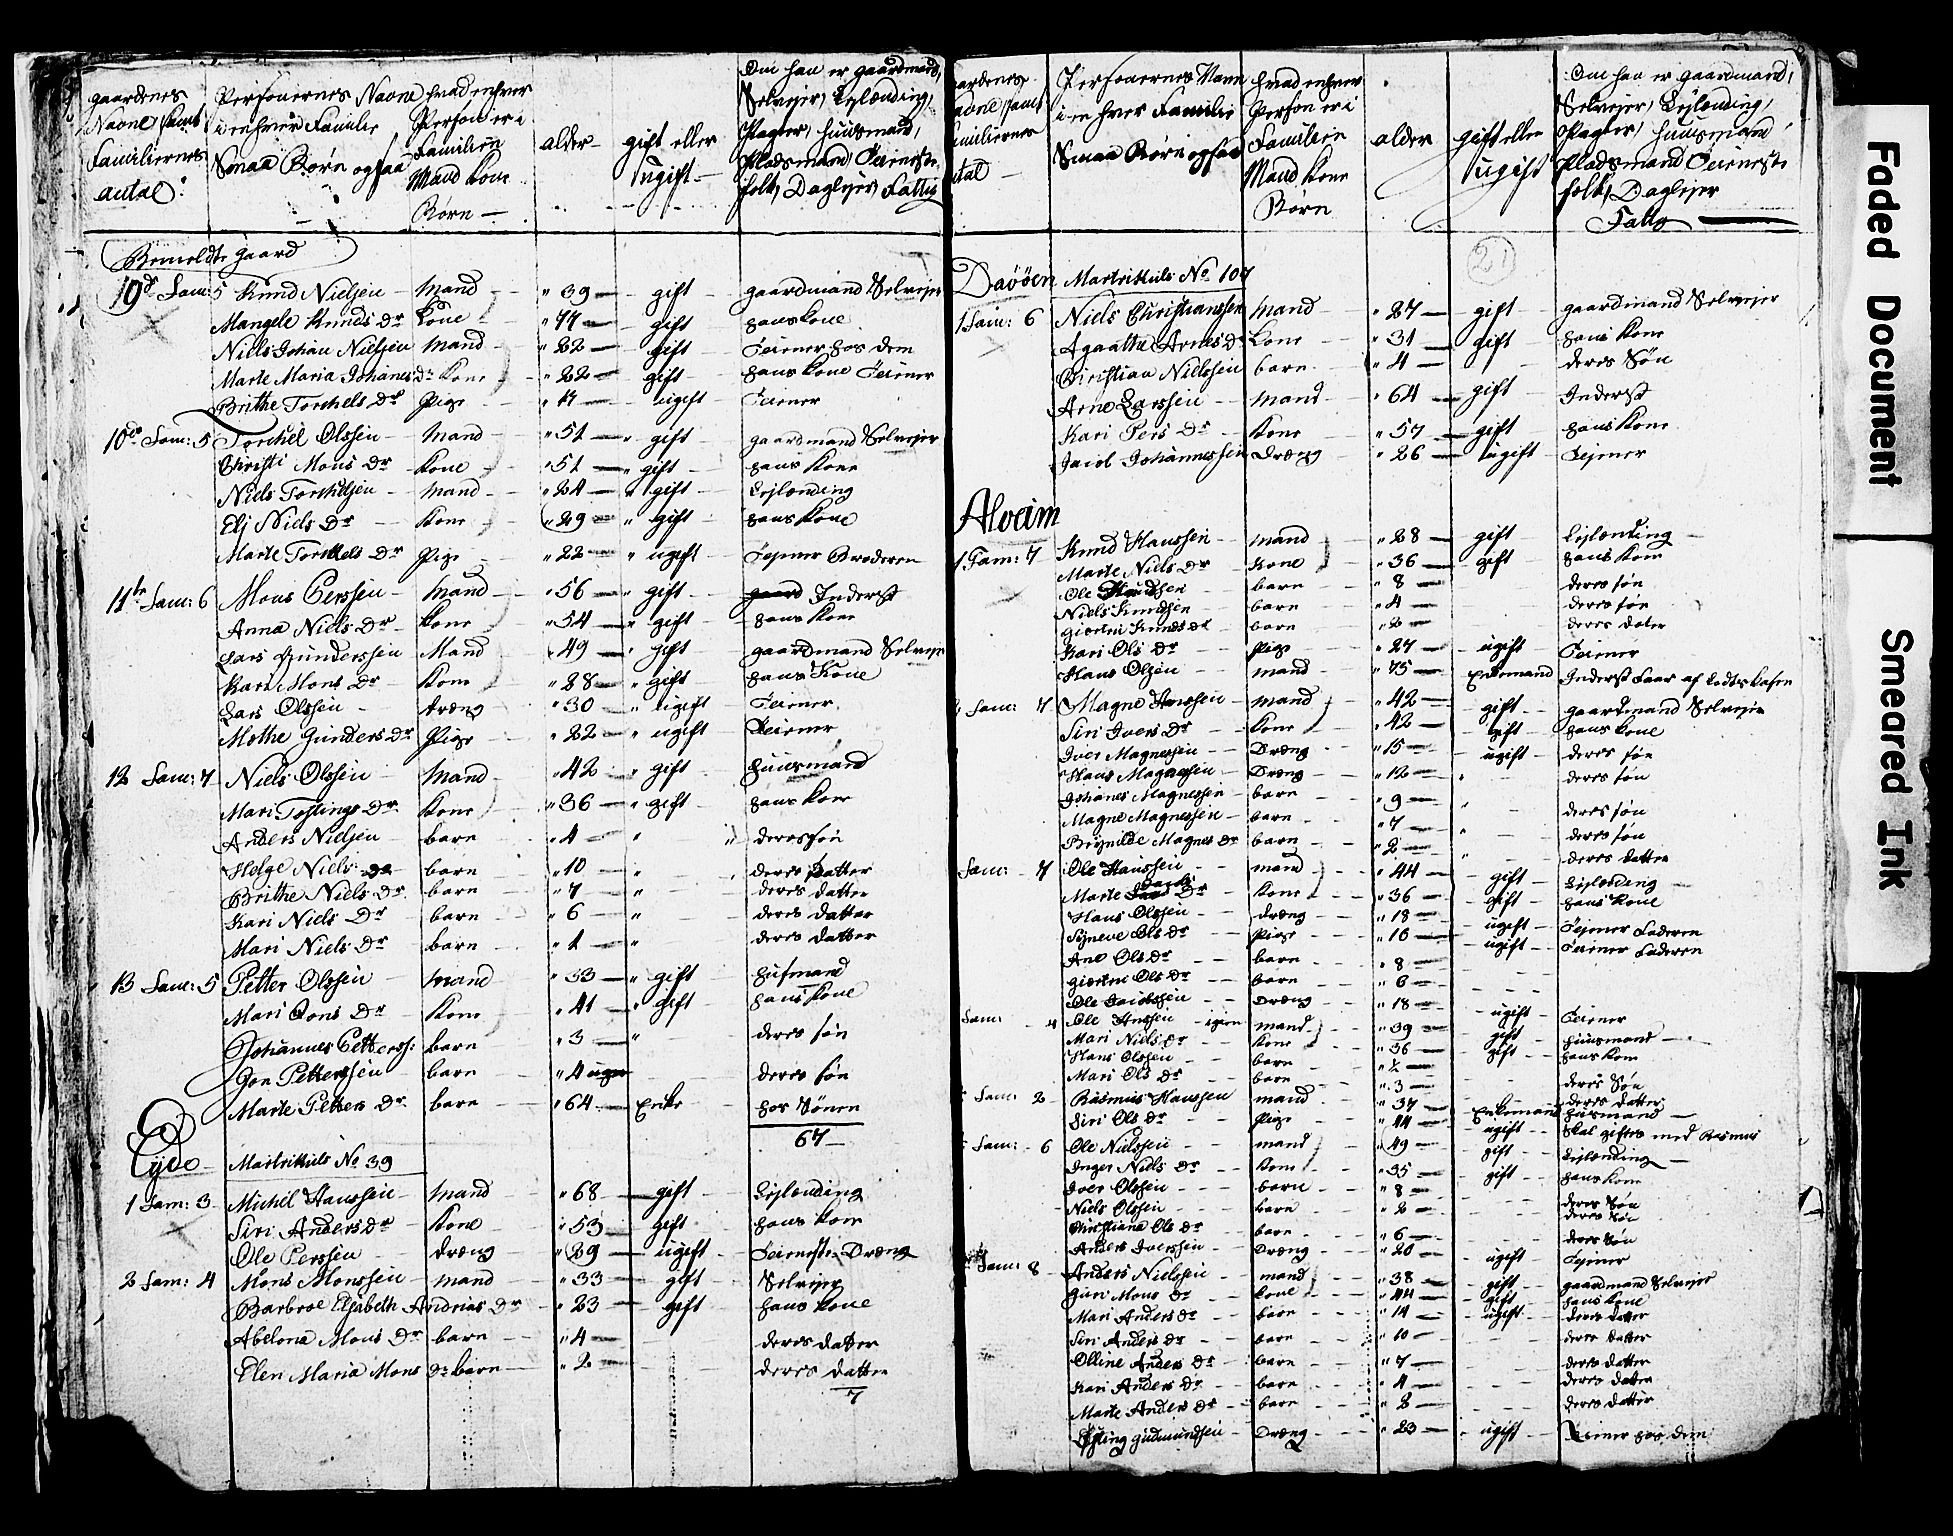 gaardenes Navne samt Familiernes antal: | Personernes Navne i en hver Familie Smaa Børn ogsaa | hvad enhver Person er i Familien Mand kone Børn | alder | gift eller ugift | Om han er gaardmand, Selvejer, Lejlænding, Plagser, huusmand, Pladsmand Tieneste folk, Daglejer, Fattig
gaard
10de Fam: 5 Knud Nielsen mand 39 gift gaardmand Selvejer
Knuds Dr kone 77 gift hans kone
Niels Johan Nielsen mand 22 gift Tiener hos dem
Marte Maria Johanes Dr kone 22 gift hans kone Tiener
Brithe Torchels Dr Pige 17 ugift Tiener
10de Fam: 5 Torchel Olssen mand 51 gift gaardmand Selvejer
Christi Mons Dr kone 51 gift hans kone
Niels Torchelsen mand 24 gift Lejlænding
Elj Niels Dr kone 29 gift hans kone
Marte Torchels Dr Pige 22 ugift Tejener Broderen
11te Fam: 6 Mons Perssen mand 56 gift gaard Inderst
Anna Niels Dr kone 54 gift hans kone
Lars Gunderssen Mand 49 gift gaardmand Selvejer
Kari Mons Dr kone 28 gift hans Kone
Lars Olssen dreng 30 ugift Tiener
Mothe Gunders Dr Pige 22 ugift Tiener
12 Fam: 7 Niels Olssen mand 42 gift huusmand
Mari Tostings Dr kone 36 gift hans kone
Anders Nielsen barn 4 deres søn
Helge Niels Dr barn 10 deres datter
Brithe Niels Dr barn 7 deres datter
Kari Niels Dr barn 6 deres datter
Mari Niels Dr barn 1 deres datter
13 Fam: 5 Petter Olssen mand 33 gift husmand
Mari Dr kone 41 gift hans kone
Johannes Petterss: barn 3 deres søn
Jon Petterssen barn 4 uger deres søn
Marte Petters Dr barn 64 Enke hos Sønen
67
Eyde Martrikuls No 39
1 Fam: 3 Michel Hanssen mand 68 gift Lejlænding
Siri Anders Dr kone 53 gift hans kone
Ole Perssen dreng 29 ugift Tieneste Dreng
2 Fam: 4 Mons Monssen mand 33 gift Selvejer
Barbroe Elsabeth Andrias Dr 23 gift hans kone
Abelona Mons Dr barn 4 deres datter
Elen Maria Mons Dr barn 2 deres datter
7
gaardenes Navne samt Familiernes antal | Personernes Navn i en hver Familie Smaa Børn ogsaa | hvad enhver Person er i Familien Mand kone Børn | alder | gift eller ugift | Om han er gaardmand, Selvejer, Lejlænding, Plagser, huusmand Pladsmand Tieneste folk, Daglejer Fattig
21
Martrikuls No 107
1 Fam: 6 Niels Christianssen mand 27 gift gaardmand Selvejer
Agaathe Arnes Dr kone 31 gift hans kone
Christian Nielssen barn 4 deres Søn
Arne Larssen mand 64 gift Inderst
Kari Pers Dr kone 57 gift hans kone
Jacob Johannessen Dreng 26 ugift Tejener
Alveim
1 Fam: 7 Knud Hanssen mand 28 gift Lejlænding
Marte Niels Dr kone 36 gift hans kone
Ole Knudsen barn 8 deres søn
Niels Knudsen barn 4 deres søn
Giertru Knuds Dr barn 2 deres dater
Kari Ols Dr Pige 27 ugift Tiener
Hans Olsen mand 75 Enkemand Inderst
Fam: 7 Magne Hanssen mand 42 gift gaardmand Selvejer
Siri Ivers Dr kone 42 gift hans kone
Iver Magnessen Dreng 15 ugift deres søn
Hans Magnessen Dreng 12 deres søn
Johanes Magnessen barn 9 deres søn
Magne Magnessen barn 7 deres søn
Brynilde Magnes Dr barn 2 deres datter
Fam: 7 Ole Hanssen mand 44 gift Lejlænding
Marte Dr kone 36 gift hans kone
Hans Olssen dreng 18 ugift Tejener Faderen
Synneve Ols Dr Pige 16 ugift Tiener Faderen
Ane Ols Dr barn 8
Giertru Ols Dr barn 6
Ole Jacobssen Dreng 18 ugift Tiener
Fam: 4 Ole Hanssen igien mand 39 gift huusmand
Mari Niels Dr kone 36 gift hans kone
Hans Olssen barn ½ deres Søn
Mari Ols Dr barn 3 deres datter
Fam: 2 Rasmus Hanssen mand 37 Enkemand husmand
Siri Ols Dr Pige 44 ugift skal giftes med Rasmus
Fam: 6 Ole Nielssen mand 49 gift Lejlænding
Inger Niels Dr kone 35 gift hans kone
Iver Olssen barn 8 deres Søn
Niels Olssen barn 2 deres Søn
Christiana Ols Dr barn 6 deres Søn
Anders Iverssen Dreng 20 ugift Tejener
Fam: 8 Anders Nielssen mand 38 gift gaardmand Selvejer
Guri Mons Dr kone 44 gift hans kone
Mari Anders Dr barn 14 ugift deres datter
Siri Anders Dr barn 10 deres datter
Olline Anders Dr barn 7 deres datter
Kari Anders Dr barn 4 deres datter
Marte Anders Dr barn 2 deres datter
Gudmundsen Dreng 23 ugift Tiener hos dem
Faded Document
Smeared Ink